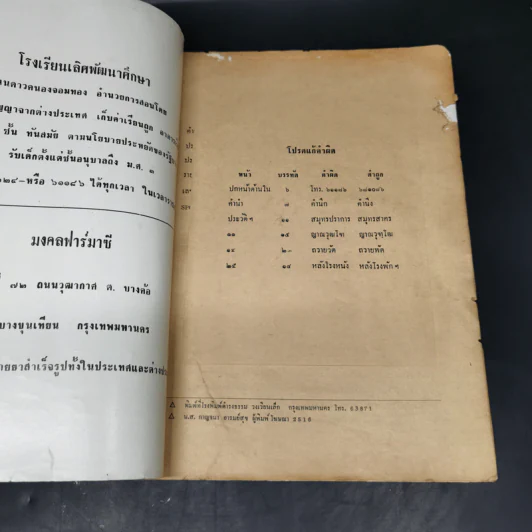 โรงเรียนเลิศพัฒนาศึกษา
นดาวดนองจอมทอง อำนวยการสอนโดย
ญญาจากต่างประเทศ เก็บค่าเรียนถูก
ชั้น ทันสมัย ตามนโยบายประหยัดของรัฐ
รับเด็กตั้งแต่ชั้นอนุบาลถึง ม.ศ. ๓
๑๒๔-หรือ ๖๐๑๑๖ ได้ทุกเวลา ในเวลา
มงคลฟาร์มาซี
๗๒ ถนนวุฒากาศ ต. บางค้อ
บางขุนเทียน กรุงเทพมหานคร
ายยาสำเร็จรูปทั้งในประเทศและต่างป
โปรดแก้คำผิด
หน้า บรรทัด คำผิด คำถูก
ปกหน้าด้านใน ๖ โทร.
คำนำ ๗ คำนึก คำนึง
ประวัติฯ ๑๑ สมุทรปราการ สมุทรสาคร
๑๑ ๑๕ ญาณวุฒโฑ ญาณวุฑฺโฒ
๑๔ ๒- ถวายวัด ถวายพัด
๒๕ ๑๔ หลังโรงหนัง หลังโรงพักฯ
พิมพ์ที่โรงพิมพ์ดำรงธรรม วงเวียนเล็ก กรุงเทพมหานคร โทร. 63871
น.ส. กาญจนา อารมย์สุข ผู้พิมพ์โฆษณา 2516